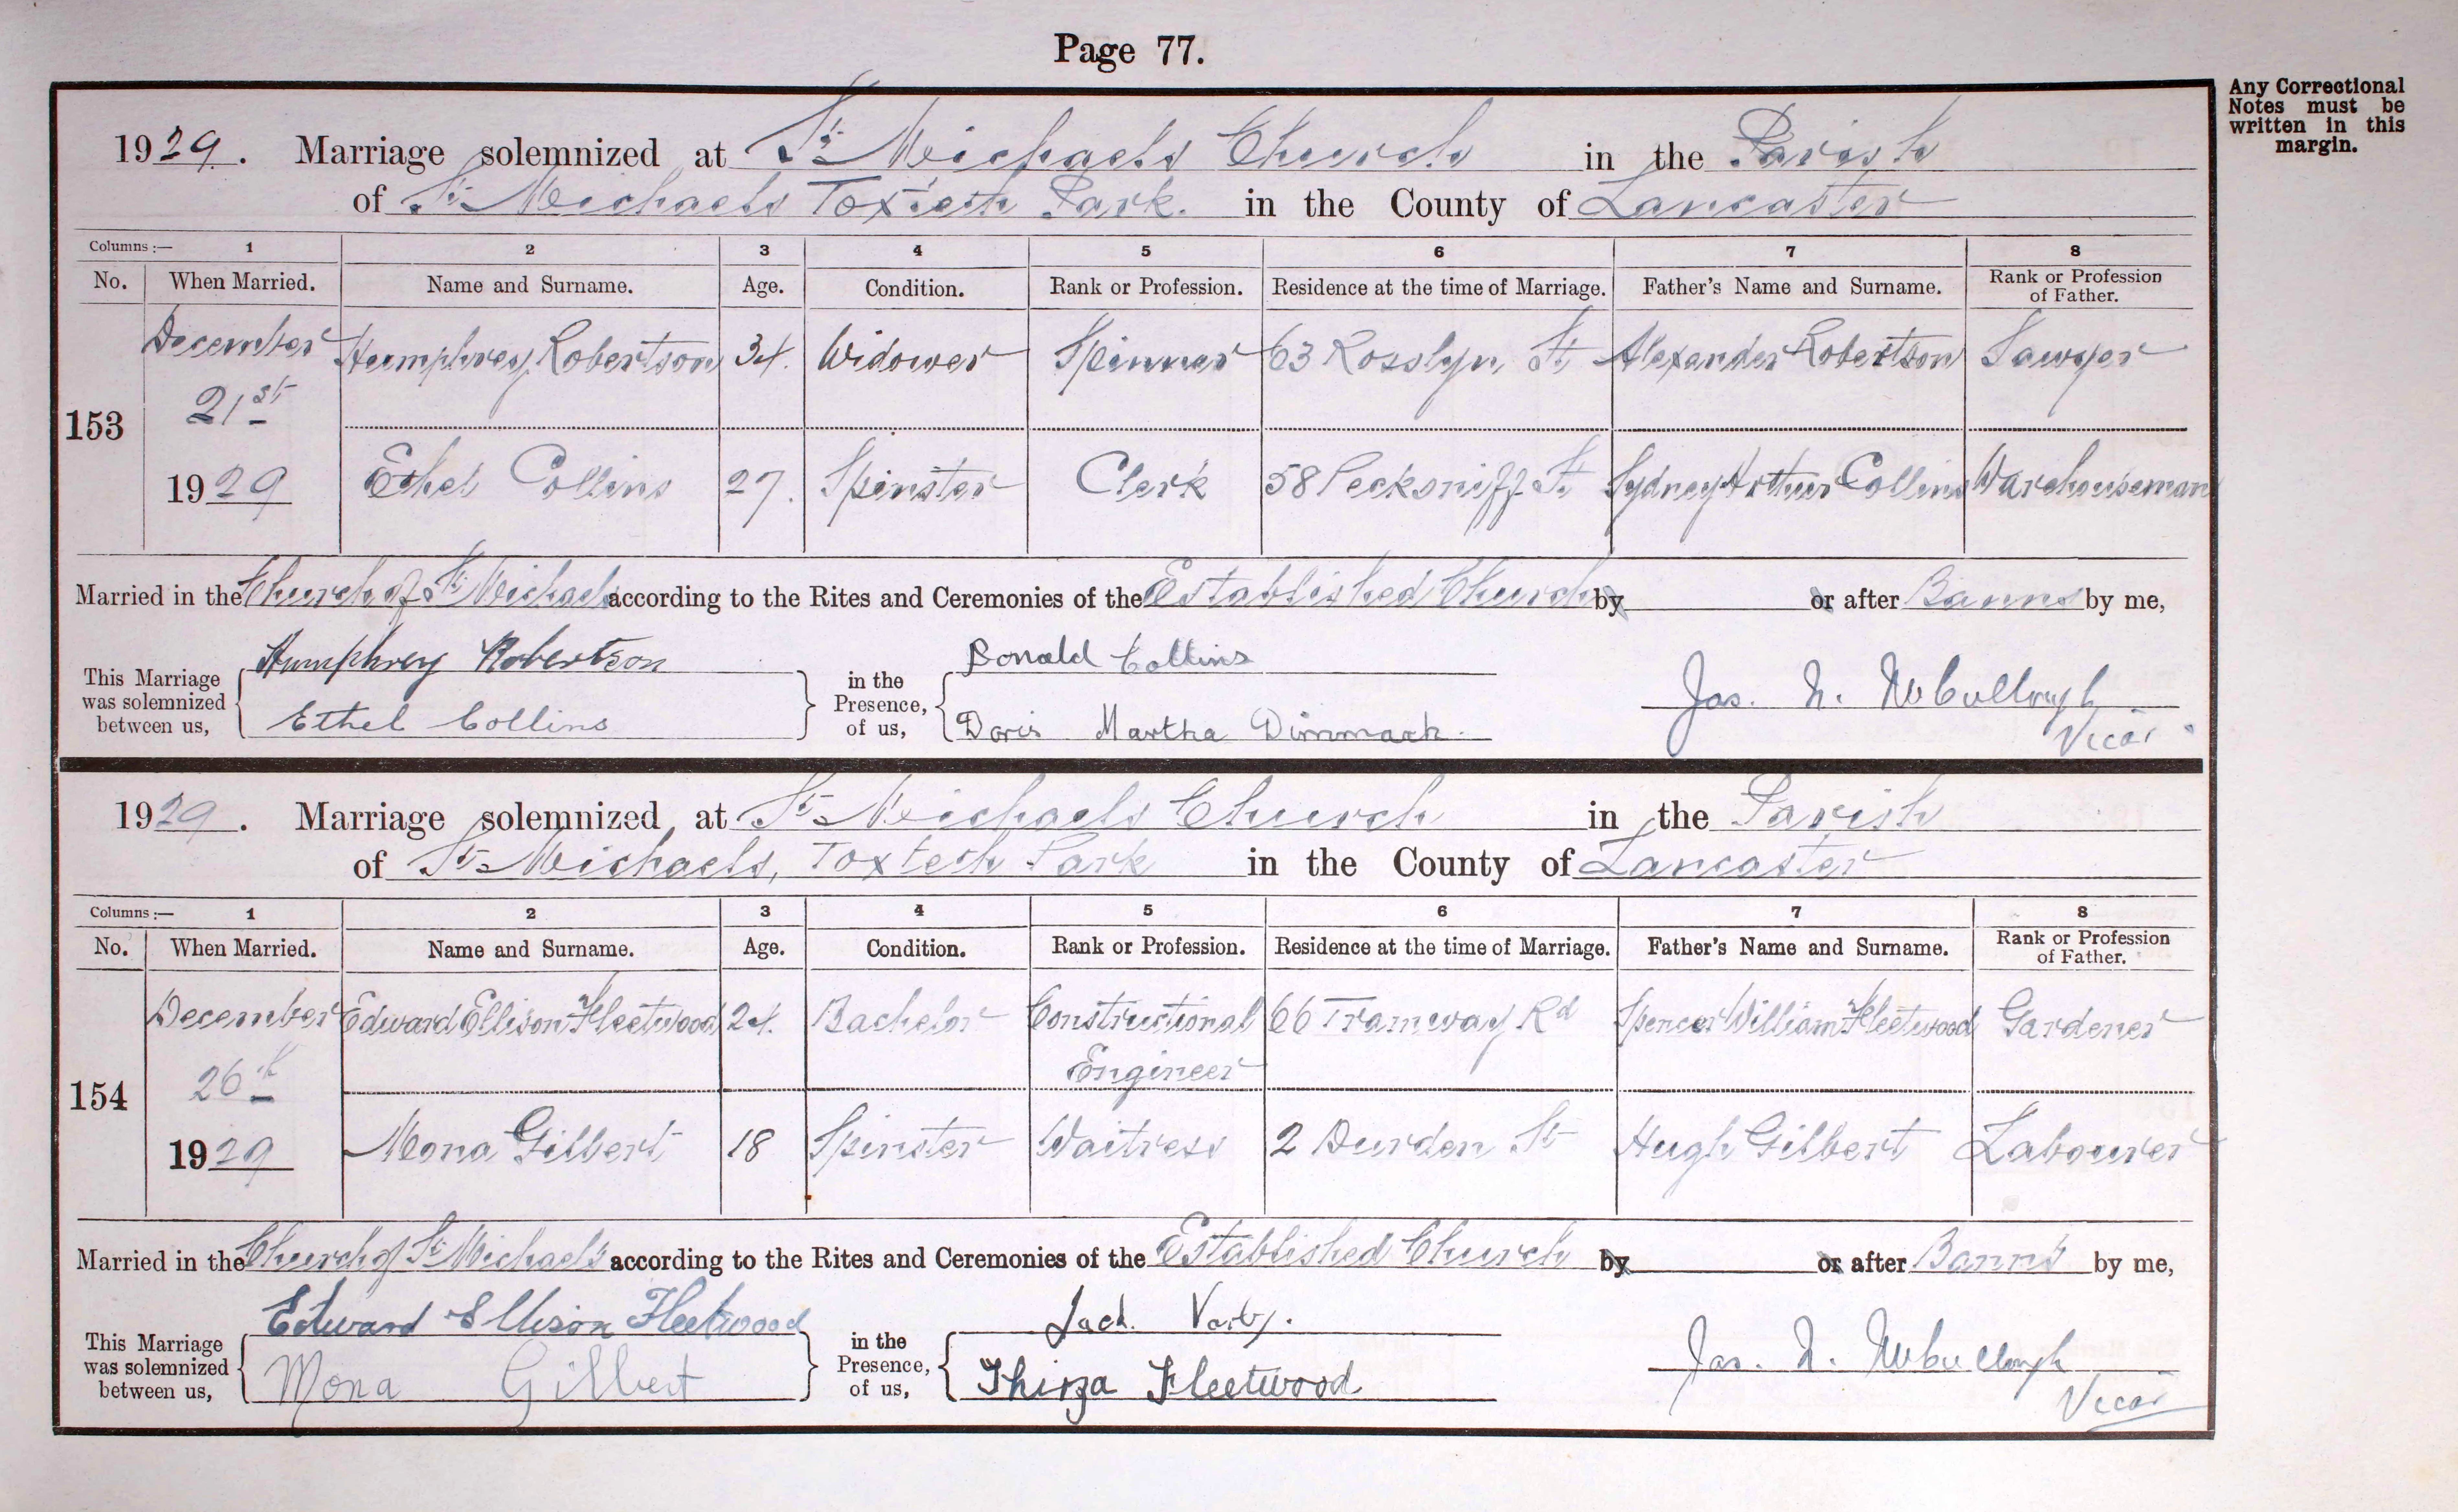 Page 77.
Any Correctional
Notes must be
written in this
margin.
1929. Marriage solemnized at St Michaels Church in the Parish
of St Michaels Toxteth Park. in the County of Lancaster
Columns :— 1 2 3 4 5 6 7 8
No. When Married. Name and Surname. Age. Condition. Rank or Profession. Residence at the time of Marriage. Father's Name and Surname. Rank or Profession of Father.
December Humphrey Robertson 34. Widower Spinner 63 Rosslyn St Alexander Robertson Sawyer
21st
153
1929 Ethel Collins 27. Spinster Clerk 58 Pecksniff St Sydney Arthur Collins Warehouseman
Married in the Church of St Michael according to the Rites and Ceremonies of the Established Church by or after Banns by me,
This Marriage was solemnized between us, Humphrey Robertson in the Presence, of us, Donald Collins Jas. N. McCullough
Ethel Collins Doris Martha Dimmack. Vicar
1929. Marriage solemnized at St Michaels Church in the Parish
of St Michaels, Toxteth Park in the County of Lancaster
Columns :— 1 2 3 4 5 6 7 8
No. When Married. Name and Surname. Age. Condition. Rank or Profession. Residence at the time of Marriage. Father's Name and Surname. Rank or Profession of Father.
December Edward Ellison Fleetwood 24. Bachelor Constructional Engineer 66 Tramway Rd Spencer William Fleetwood Gardener
26th
154
1929 Mona Gilbert 18 Spinster Waitress 2 Durden St Hugh Gilbert Labourer
Married in the Church of St Michael's according to the Rites and Ceremonies of the Established Church by or after Banns by me,
This Marriage was solemnized between us, Edward Ellison Fleetwood in the Presence, of us, Jack Jas. N. McCullough
Mona Gilbert Thirza Fleetwood. Vicar